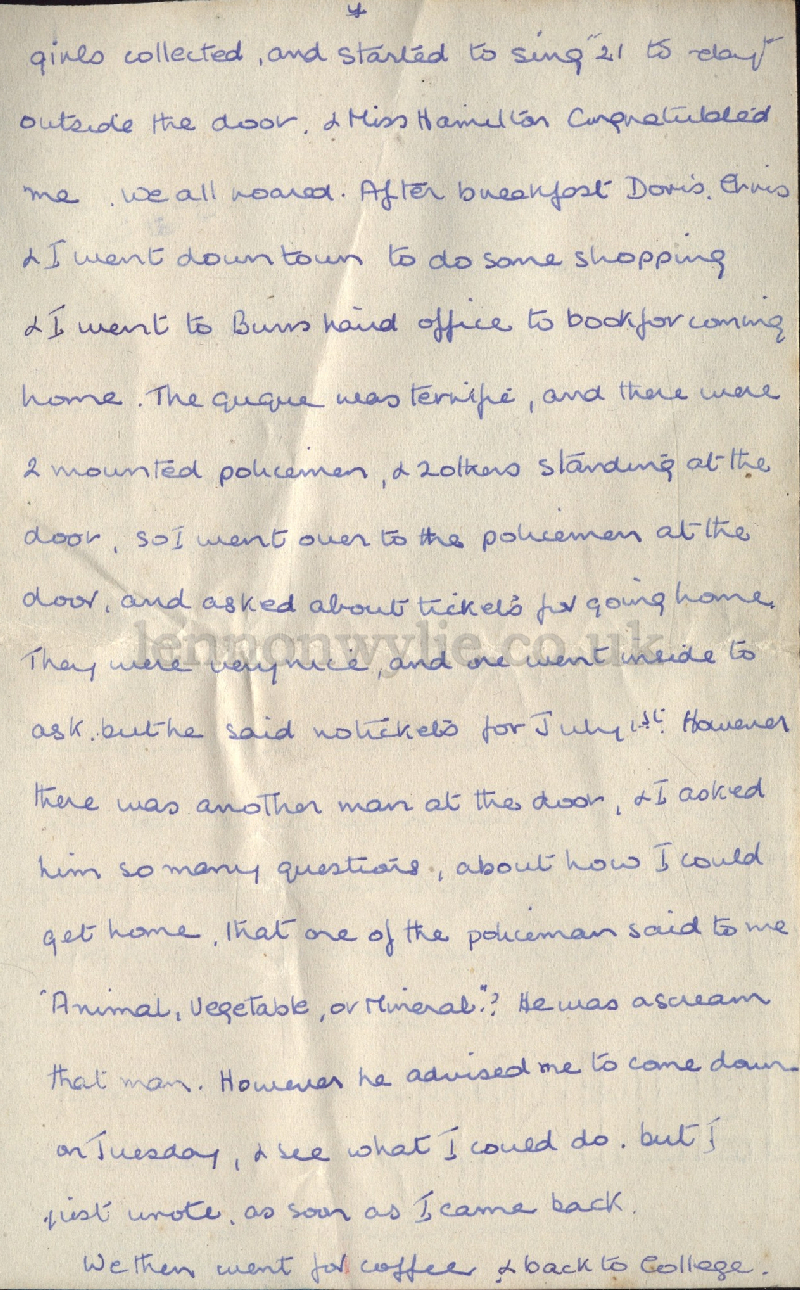 4
girls collected, and started to sing "21 to-day"
outside the door, & Miss Hamilton Congratulated
me. We all roared. After breakfast Doris, Chris
& I went down town to do some shopping
& I went to Burns Laird office to book for coming
home. The queue was terrific, and there were
2 mounted policemen, & 2 others standing at the
door, so I went over to the policemen at the
door, and asked about tickets for going home.
lennonwylie.co.uk
They were very nice, and one went inside to
ask. but he said no tickets for July 1st. However
there was another man at the door, & I asked
him so many questions, about how I could
get home, that one of the policeman said to me
"Animal, Vegetable, or Mineral"? He was a scream
that man. However he advised me to come down
on Tuesday, & see what I could do. but I
just wrote, as soon as I came back.
We then went for coffee & back to College.